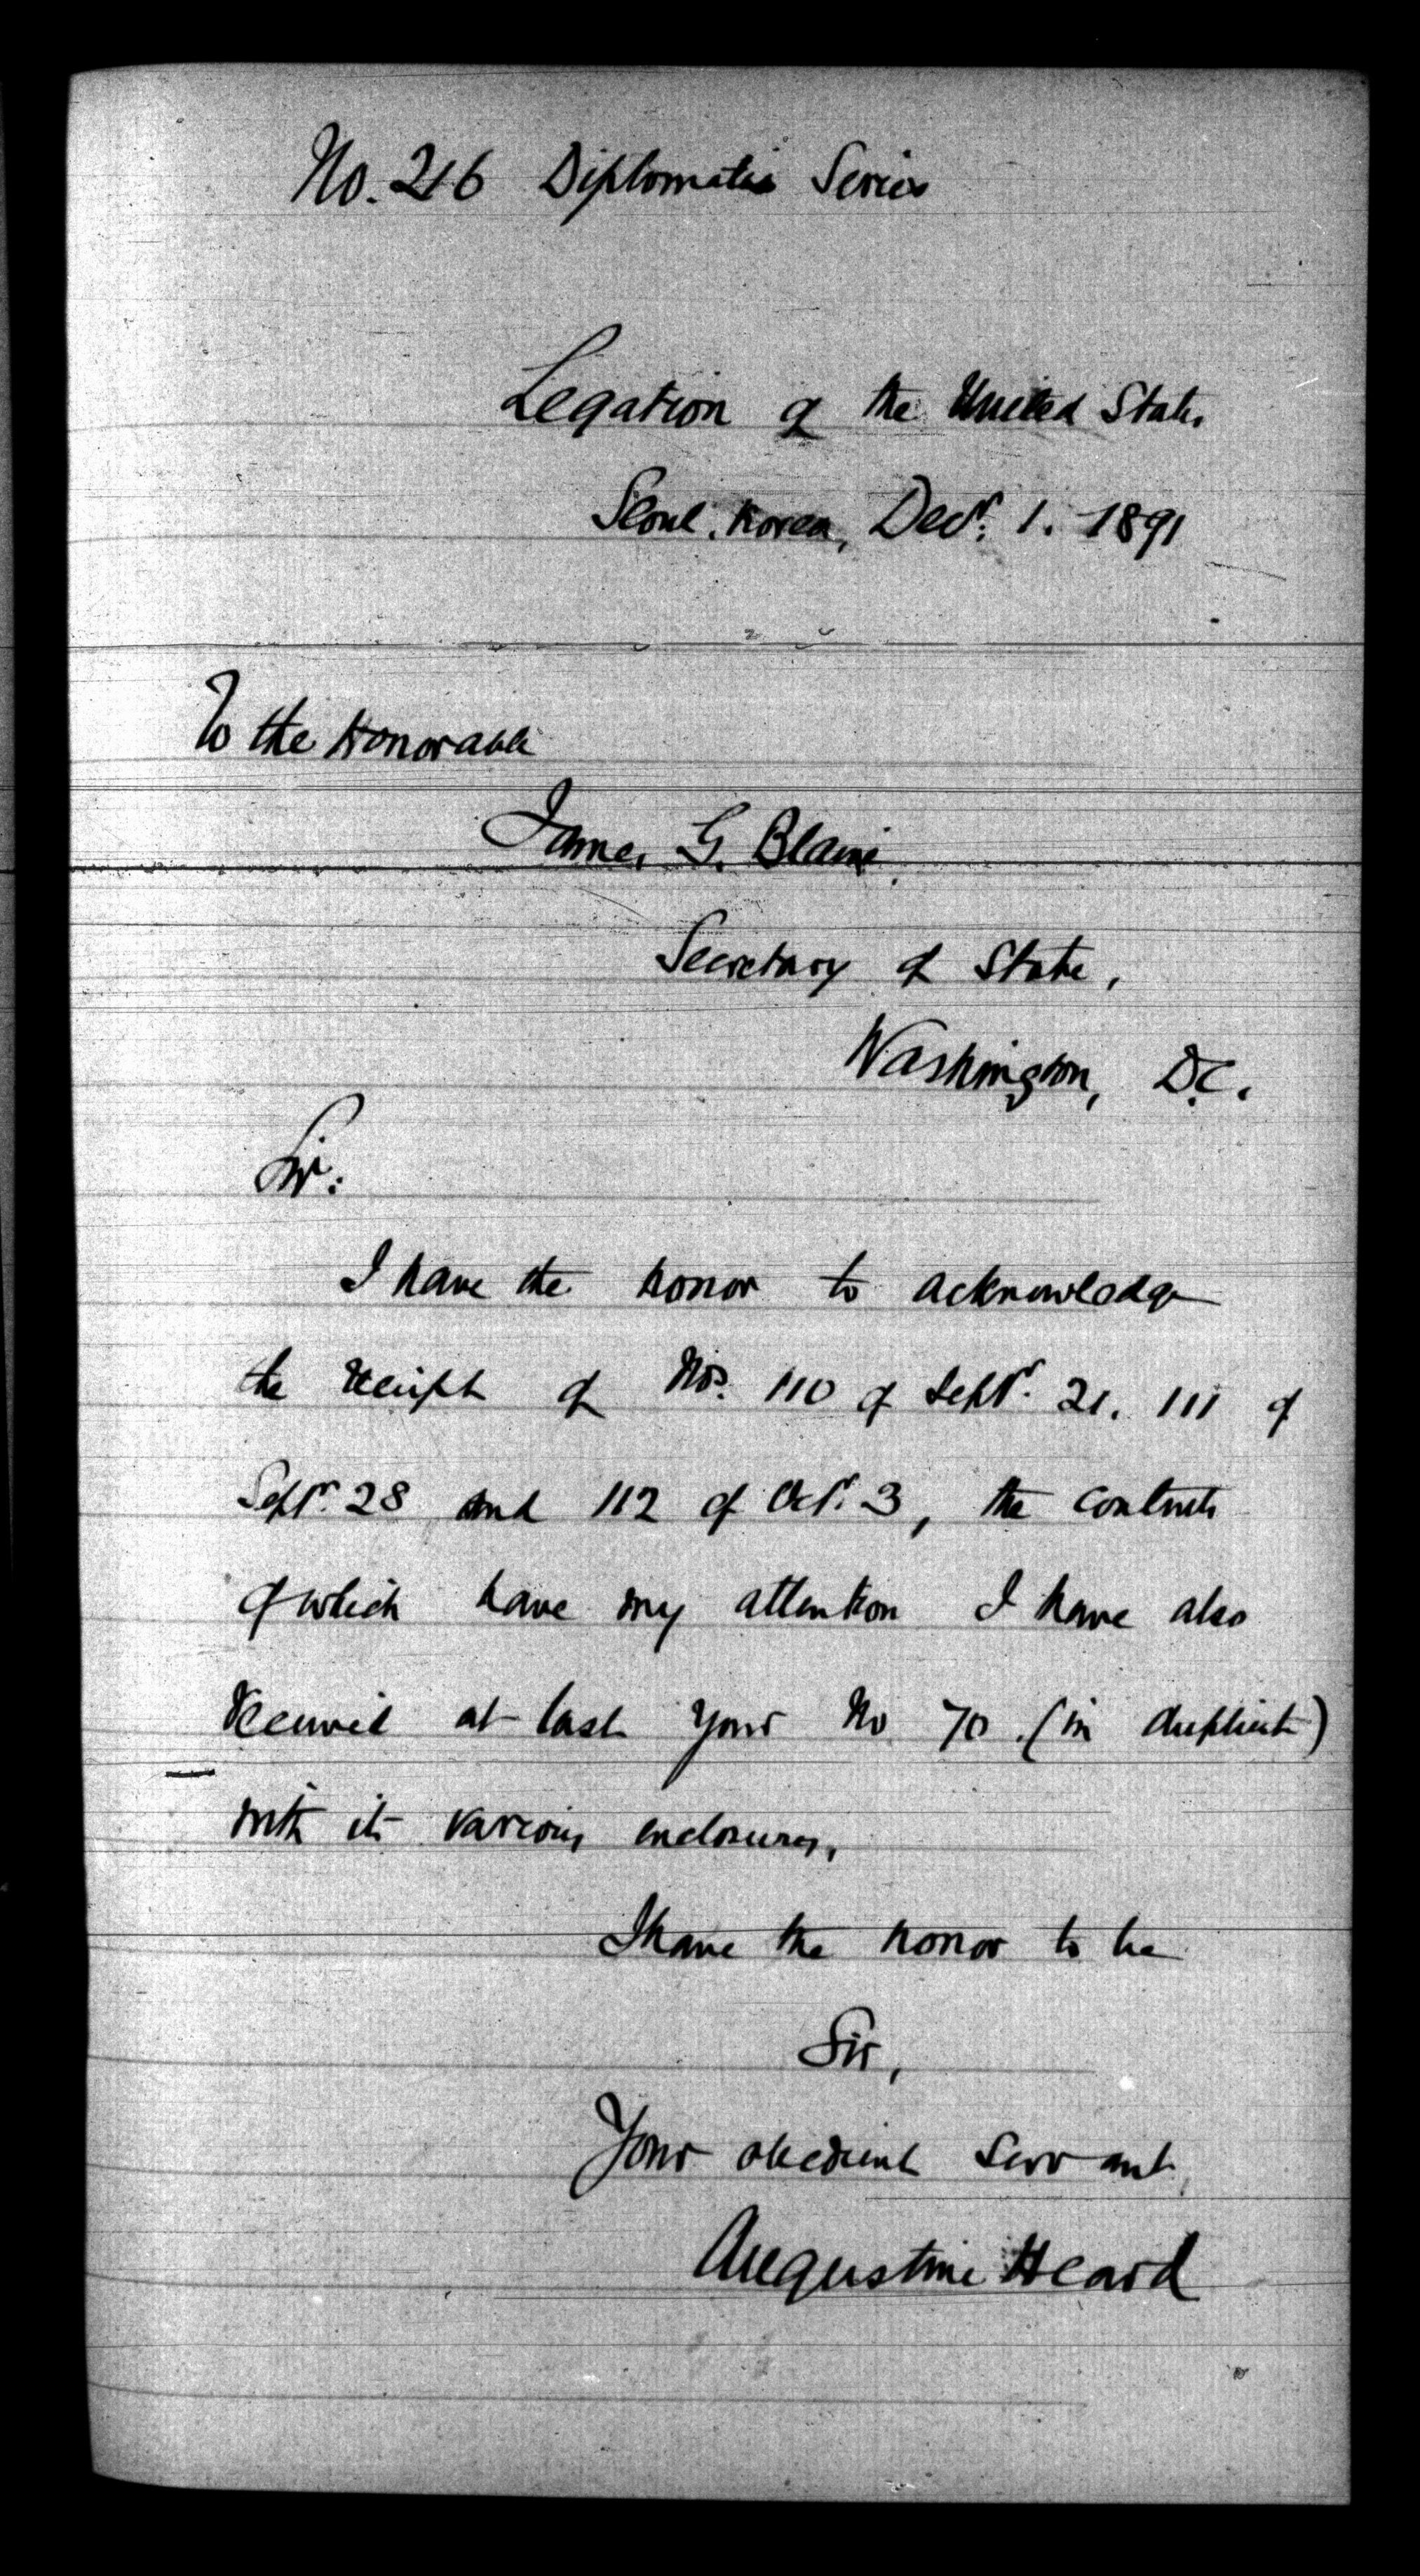 No. 216 Diplomatic Series
Legation of the United States
Seoul, Korea, Decr. 1. 1891
To the Honorable
James G. Blaine,
Secretary of State,
Washington, D.C.
Sir:
I have the honor to acknowledge
the receipt of Nos. 110 of Septr. 21, 111 of
Septr. 28 and 112 of Octr. 3, the contents
of which have my attention I have also
received at last your No 70 (in duplicate)
with its various enclosures.
I have the honor to be
Sir,
Your obedient servant
Augustine Heard